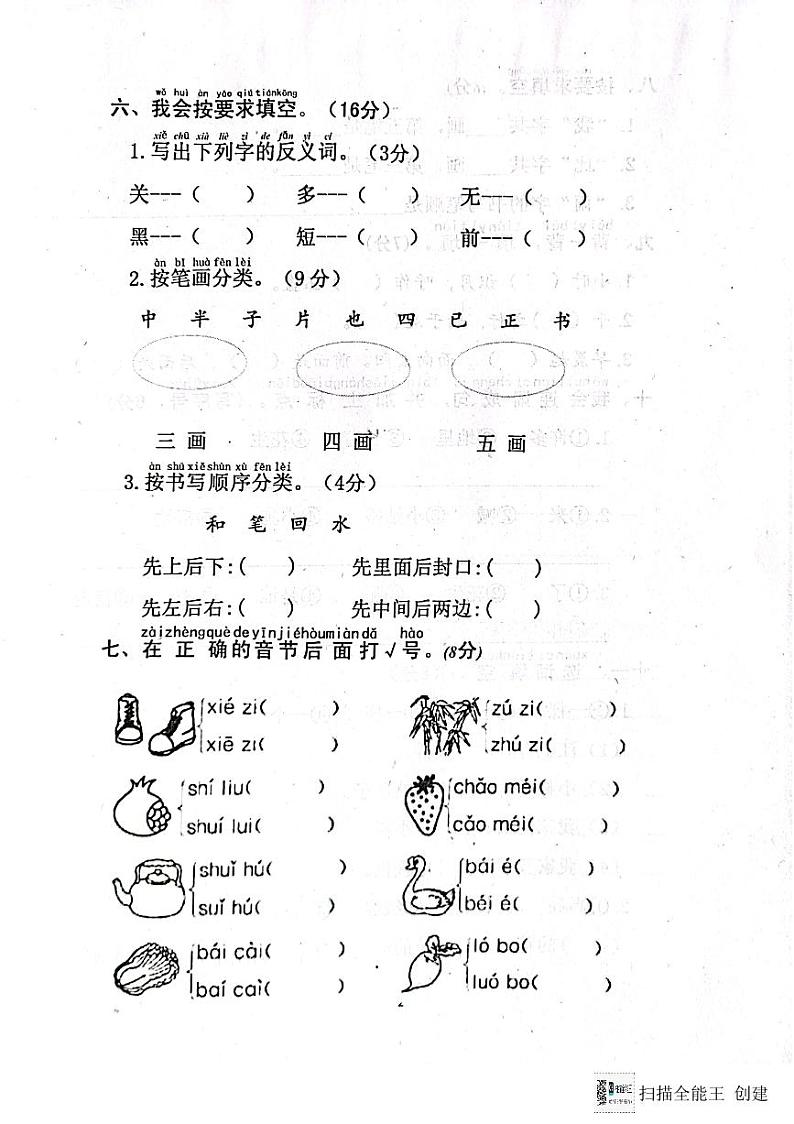 wǒ huì àn yāo qiú tián kòng
六、我会按要求填空。（16分）
xiě chū xià liè zì de fǎn yì cí
1.写出下列字的反义词。（3分）
关---（ ） 多---（ ） 无---（ ）
黑---（ ） 短---（ ） 前---（ ）
àn bǐ huà fēn lèi
2.按笔画分类。（9分）
中 半 子 片 也 四 已 正 书
三画 四画 五画
àn shū xiě shùn xù fēn lèi
3.按书写顺序分类。（4分）
和 笔 回 水
先上后下:( ) 先里面后封口:( )
先左后右:( ) 先中间后两边:( )
zài zhèng què de yīn jié hòu miàn dǎ hào
七、在正确的音节后面打√号。(8分)
xié zi( ) zú zi( )
xiē zi( ) zhú zi( )
shí liu( ) chǎo méi( )
shuí lui( ) cǎo méi( )
shuǐ hú( ) bái é( )
suǐ hú( ) béi é( )
bái cài( ) ló bo( )
baí caì( ) luó bo( )
扫描全能王 创建